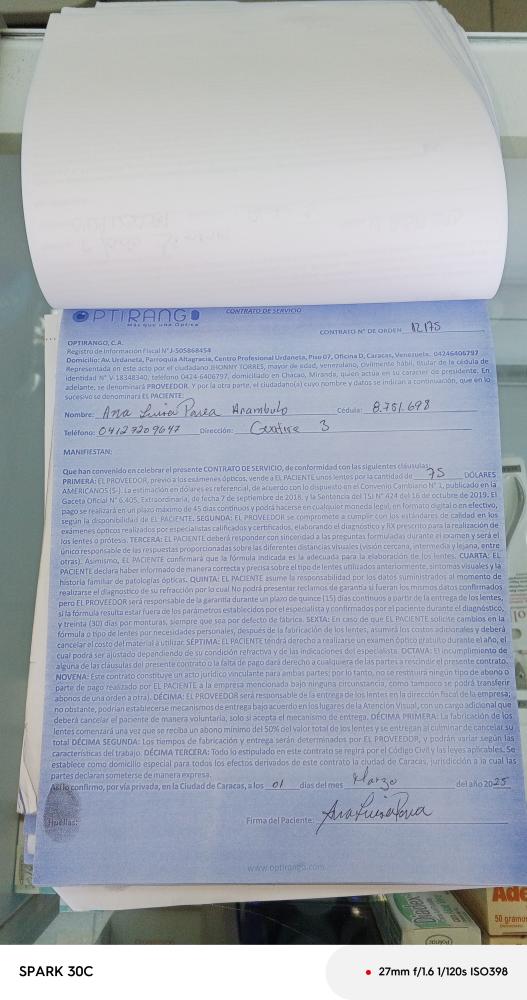 OPTIRANGO
Más que una Óptica
CONTRATO DE SERVICIO
CONTRATO N° DE ORDEN 12175
OPTIRANGO, C.A.
Registro de Información Fiscal N°J-505868454
Domicilio: Av. Urdaneta, Parroquia Altagracia, Centro Profesional Urdaneta, Piso 07, Oficina D, Caracas, Venezuela. 04246406797
Representada en este acto por el ciudadano JHONNY TORRES, mayor de edad, venezolano, civilmente hábil, titular de la cédula de
identidad N° V-18348340, telefono 0424-6406797, domiciliado en Chacao, Miranda, quien actua en su caracter de presidente. En
adelante, se denominará PROVEEDOR. Y por la parte otra, el ciudadano(a) cuyo nombre y datos se indican a continuación, que en lo
sucesivo se denominará EL PACIENTE:
Nombre: Ana Luisa Parea Arambulo Cédula: 8.751.698
Teléfono: 04127209647 Dirección: 3
MANIFIESTAN:
Que han convenido en celebrar el presente CONTRATO DE SERVICIO, de conformidad con las siguientes cláusulas:
PRIMERA: EL PROVEEDOR, previo a los exámenes ópticos, vende a EL PACIENTE unos lentes por la cantidad de 75 DÓLARES
AMERICANOS ($-). La estimación en dólares es referencial, de acuerdo con lo dispuesto en el Convenio Cambiario N° 1, publicado en la
Gaceta Oficial N° 6.405, Extraordinaria, de fecha 7 de septiembre de 2018, y la Sentencia del TSJ N° 424 del 16 de octubre de 2019. El
pago se realizará en un plazo máximo de 45 dias continuos y podrá hacerse en cualquier moneda legal, en formato digital o en efectivo,
según la disponibilidad de EL PACIENTE. SEGUNDA: EL PROVEEDOR se compromete a cumplir con los estándares de calidad en los
exámenes ópticos realizados por especialistas calificados y certificados, elaborando el diagnóstico y RX prescrito para la realización de
los lentes o prótesis. TERCERA: EL PACIENTE deberá responder con sinceridad a las preguntas formuladas durante el examen y será el
único responsable de las respuestas proporcionadas sobre las diferentes distancias visuales (visión cercana, intermedia y lejana, entre
otras). Asimismo, EL PACIENTE confirmará que la fórmula indicada es la adecuada para la elaboración de los lentes. CUARTA: EL
PACIENTE declara haber informado de manera correcta y precisa sobre el tipo de lentes utilizados anteriormente, síntomas visuales y la
historia familiar de patologías ópticas. QUINTA: EL PACIENTE asume la responsabilidad por los datos suministrados al momento de
realizarse el diagnostico de su refracción por lo cual No podrá presentar reclamos de garantía si fueran los mismos datos confirmados
pero EL PROVEEDOR será responsable de la garantía durante un plazo de quince (15) días continuos a partir de la entrega de los lentes,
si la fórmula resulta estar fuera de los parámetros establecidos por el especialista y confirmados por el paciente durante el diagnóstico,
y treinta (30) días por monturas, siempre que sea por defecto de fábrica. SEXTA: En caso de que EL PACIENTE solicite cambios en la
fórmula o tipo de lentes por necesidades personales, después de la fabricación de los lentes, asumirá los costos adicionales y deberá
cancelar el costo del material a utilizar. SÉPTIMA: EL PACIENTE tendrá derecho a realizarse un examen óptico gratuito durante el año, el
cual podrá ser ajustado dependiendo de su condición refractiva y de las indicaciones del especialista. OCTAVA: El incumplimiento de
alguna de las clausulas del presente contrato o la falta de pago dará derecho a cualquiera de las partes a rescindir el presente contrato.
NOVENA: Este contrato constituye un acto jurídico vinculante para ambas partes; por lo tanto, no se restituirá ningún tipo de abono o
parte de pago realizado por EL PACIENTE a la empresa mencionada bajo ninguna circunstancia, como tampoco se podrá transferir
abonos de una orden a otra). DÉCIMA: EL PROVEEDOR será responsable de la entrega de los lentes en la dirección fiscal de la empresa;
no obstante, podrían establecerse mecanismos de entrega bajo acuerdo en los lugares de la Atención Visual, con un cargo adicional que
deberá cancelar el paciente de manera voluntaria, solo si acepta el mecanismo de entrega. DÉCIMA PRIMERA: La fabricación de los
lentes comenzará una vez que se reciba un abono mínimo del 50% del valor total de los lentes y se entregan al culminar de cancelar su
total DÉCIMA SEGUNDA: Los tiempos de fabricación y entrega serán determinados por EL PROVEEDOR, y podrán variar según las
características del trabajo. DÉCIMA TERCERA: Todo lo estipulado en este contrato se regirá por el Código Civil y las leyes aplicables. Se
establece como domicilio especial para todos los efectos derivados de este contrato la ciudad de Caracas, jurisdicción a la cual las
partes declaran someterse de manera expresa.
Así lo confirmo, por vía privada, en la Ciudad de Caracas, a los 01 días del mes Marzo del año 2025
Huellas:
Firma del Paciente: Ana Luisa Parea
www.optirango.com
Ade
50 gramos
SPARK 30C
27mm f/1.6 1/120s ISO398